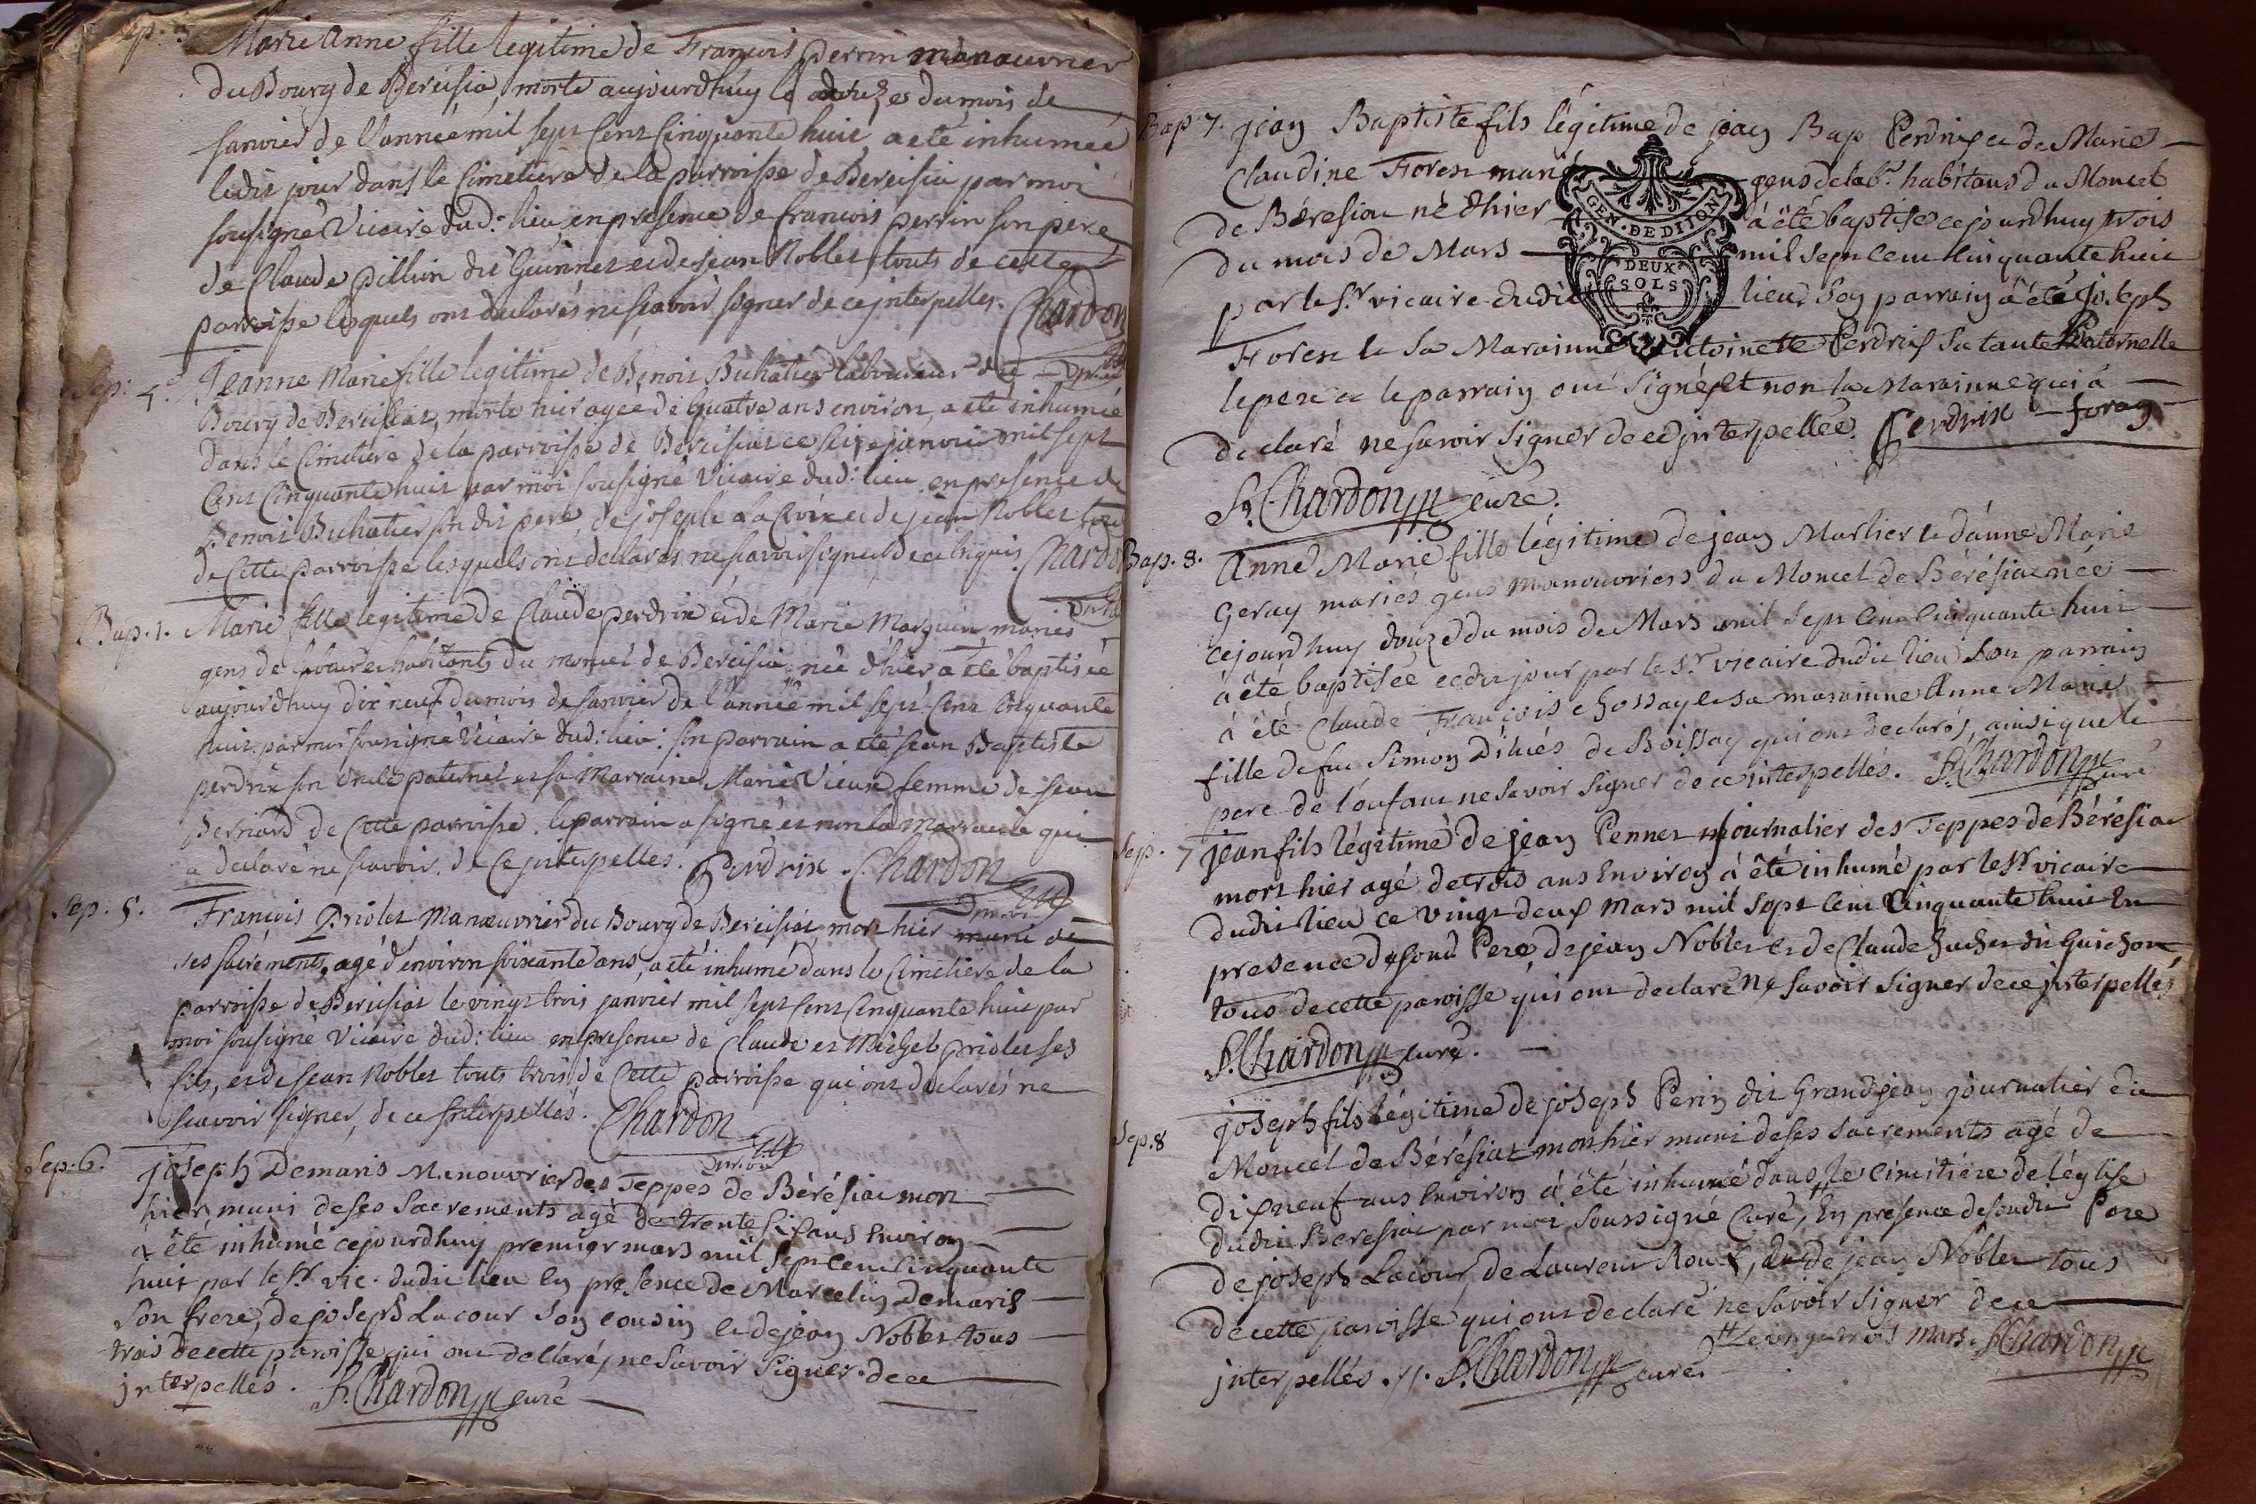 Sep. 3
Marie Anne fille legitime de François perrin manouvrier
du Bourg de Bereisia, morte aujourdhuy le douze du mois de
janvier de l'année mil sept Cent Cinquante huit, a eté inhumée
ledit jour dans le Cimetiere de la parroisse de Bereisia par moi
sousigné Vicaire dud: lieu en presence de francois perrin son pere
de Claude pillion dit Guinnet et de jean Noblet touts de cette
parroisse lesquels ont declarés ne scavoir signer de ce interpellés. Chardon
Sep: 4.
Jeanne Marie fille legitime de Benoit Buhatier laboureur du
Bourg de Bereisiat, morte hier agée de quatre ans environ, a eté inhumée
dans le Cimetiere de la parroisse de Bereisiat ce seize janvier mil sept
Cent Cinquante huit par moi sousigné Vicaire dud: lieu en presence de
Benoit Buhatier son dit pere, de joseph a la Croix et de jean Noblet tous
de Cette parroisse lesquels ont declarés ne scavoir signer de ce enquis. Chardon
Bap. 1.
Marie fille legitime de Claude perdrix et de Marie Marguin mariés
gens de labeur habitants du moncel de Bereisia, née d'hier a eté baptisée
aujourdhuy dix neuf du mois de janvier de l'année mil sept Cent Cinquante
huit par moi sousigné Vicaire dud: lieu: son parrain a eté jean Baptiste
perdrix son oncle paternel et sa Marraine Marie Vieux femme de jean
Bernard de Cette parroisse. le parrain a signé et non la Marraine qui
a declaré ne scavoir, de ce interpellés. Perdrix. Chardon
Sep. 5.
François Priolet Manœuvrier du Bourg de Bereisiat mort hier muni de
ses sacrements, agé d'environ soixante ans, a eté inhumé dans le Cimetiere de la
parroisse de Bereisiat le vingt trois janvier mil sept Cent Cinquante huit par
moi sousigné Vicaire dud: lieu en presence de Claude et Michel Priolet ses
fils, et de jean Noblet touts trois de Cette parroisse qui ont declarés ne
scavoir signer, de ce Interpellés. Chardon
Sep. 6.
joseph Demaris Manouvrier des Teppes de Bérésia mort
hier muni de ses Sacrements agé de trente six ans Environ
à été inhumé cejourdhuy premier mars mil sept cent cinquante
huit par le Sr vic. dudit lieu En presence de Marcelin Demaris
Son frere, de joseph Lacour Son cousin et de jean Noblet tous
trois de cette paroisse qui ont declaré, ne Savoir Signer. de ce
jnterpellés. Chardon curé
Bap. 7.
jean Baptiste fils légitime de jean Bap Perdrix et de Marie
Claudine Foret mariés gens de labr. habitans du Moncel
de Béresia né d'hier à été baptisé cejourdhuy trois
du mois de Mars mil sept cent Cinquante huit
par le Sr. vicaire dudit lieu, Son parrain à été joseph
Foret et Sa Marainne Antoinette Perdrix Sa tante Paternelle
le pere et le parrain ont Signés Et non la Marainne qui à
declaré ne savoir Signer de ce jnterpellée. Perdrix foray
Chardon curé.
GEN. DE DIJON
DEUX
SOLS
Bap. 8.
Anne Marie fille légitime de jean Marlier et d'anne Marie
Geray mariés gens manouvriers du Moncel de Bérésia née
cejourdhuy douze du mois de Mars mil Sept Cent Cinquante huit
à été baptisée ledit jour par le Sr vicaire dudit lieu Son parrain
à été Claude François Chossay et sa marainne Anne Marie
fille de feu Simon Dilués de Boissay qui ont declarés, ainsi que le
pere de l'enfant ne Savoir signer de ce interpellés. Chardon curé
Sep. 7
jean fils légitime de jean Pennet journalier des Teppes de Bérésia
mort hier agé de trois ans Environ à été inhumé par le Sr vicaire
dudit lieu ce vingt deux Mars mil Sept Cent Cinquante huit En
presence de sond Pere de jean Noblet et de Claude Guichon
tous de cette paroisse qui ont declaré ne Savoir Signer de ce jnterpellés
Chardon curé.
Sep. 8
joseph fils légitime de joseph Perin dit Grandjean journalier du
Moncel de Bérésiat mort hier muni de ses sacrements agé de
dixneuf ans Environ à été inhumé dans le cimitiere de l'église
dudit Beresiat par moi Soussigné Curé, En presence desondit Pere
de joseph Lacour, de Laurent Roux, et de jean Noblet tous
de cette paroisse qui ont declaré ne Savoir Signer de ce
jnterpellés. Chardon curé.
le vingt trois mars. Chardon